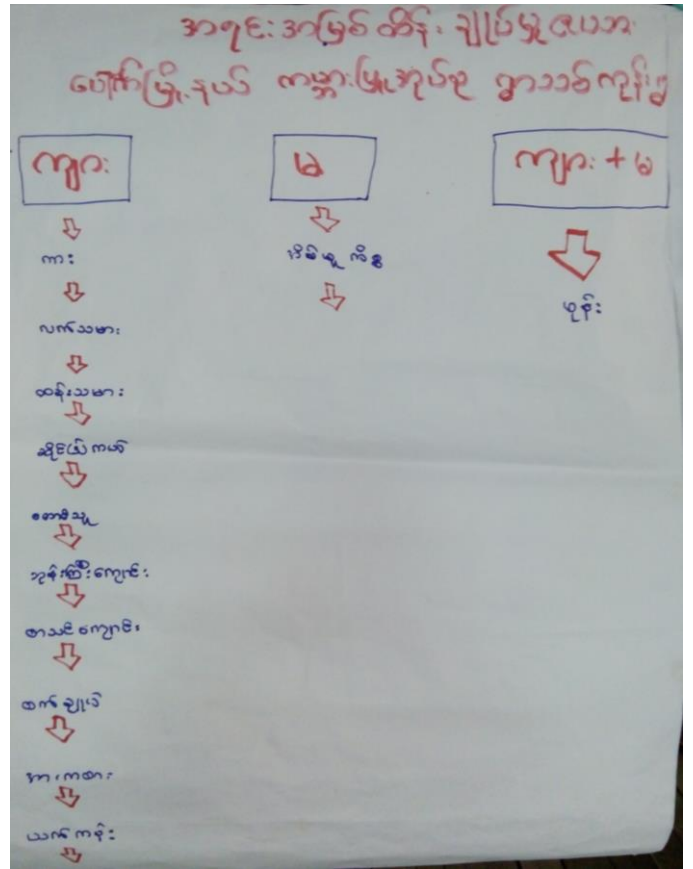 အရင်းအမြစ်ထိန်းချုပ်မှုဇယား
ပေါက်မြို့နယ် ကမ္ဘားမြုံအုပ်စု ရွာသစ်ကုန်းရွာ
ကျား
မ
ကျား + မ
ကား
လက်သမား
ထန်းသမား
ဆိုင်ယ်ကယ်
တောင်သူ
ဘုန်းကြီးကျောင်း
စာသင်ကျောင်း
ထက်ချုပ်
အားကစား
ယက်ကန်း
အိမ်မှု ကိစ္စ
ဖုန်း